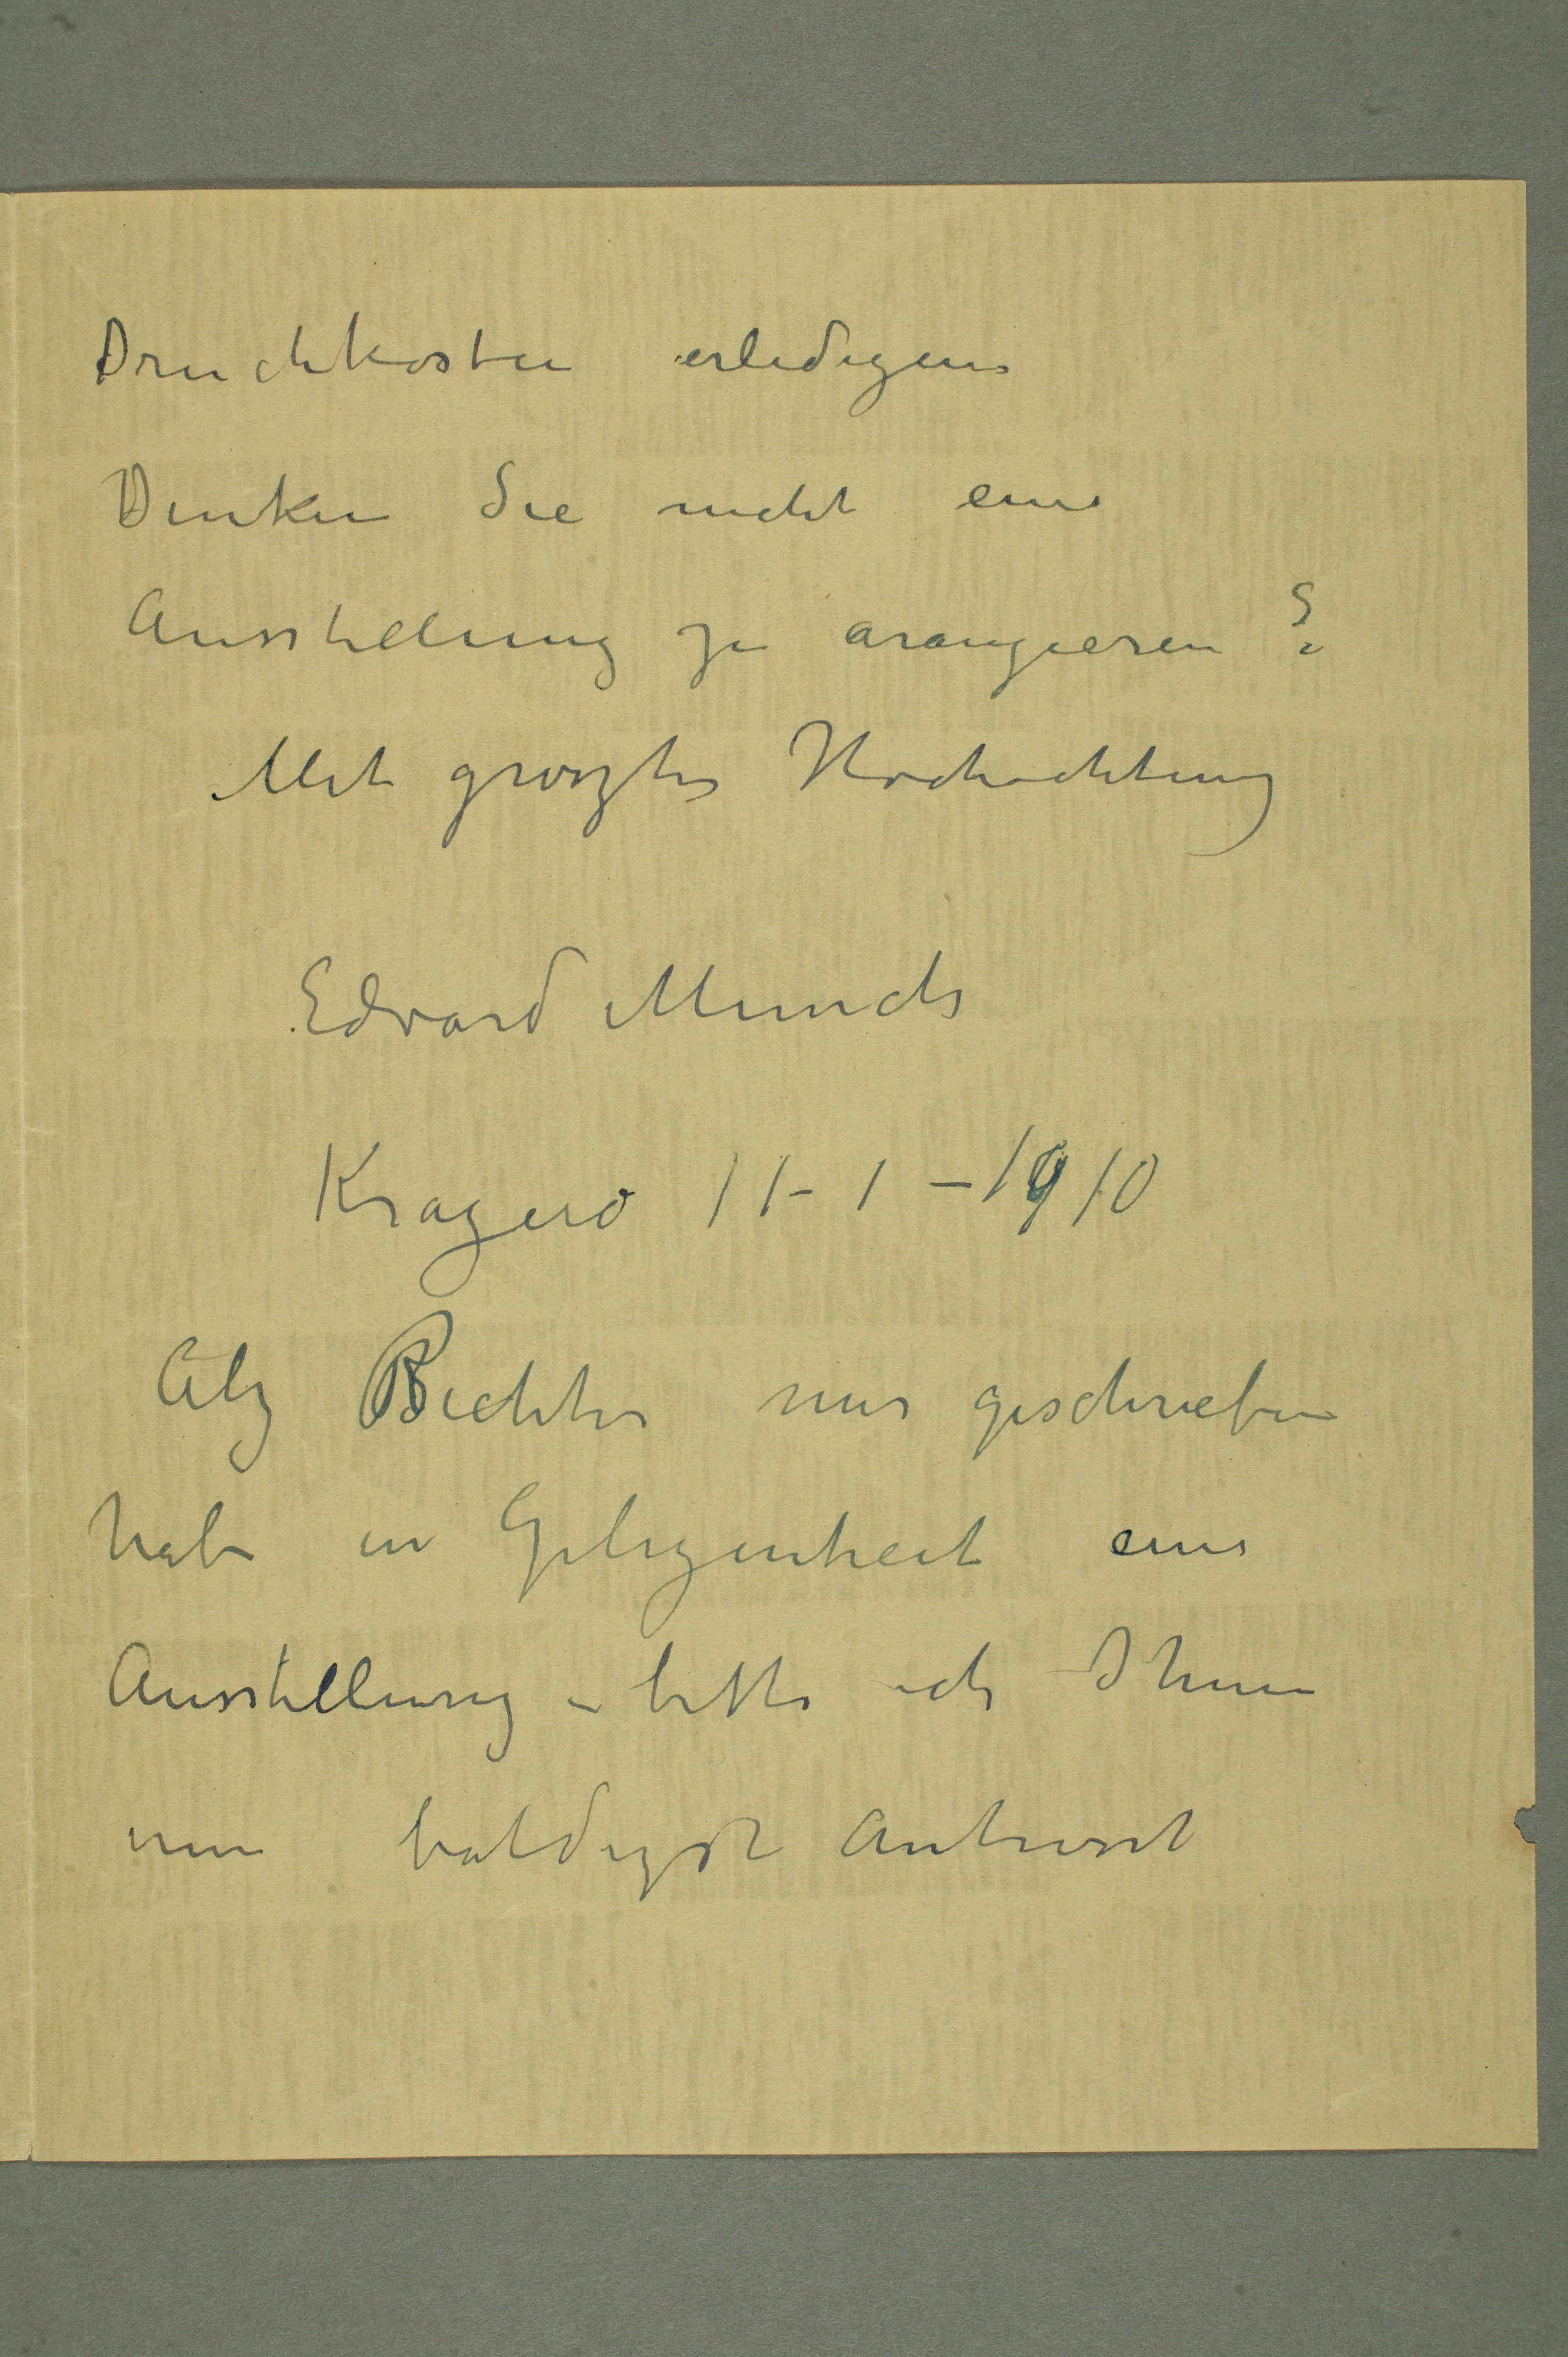 Druchkosten erledigen.
Denken Sie nicht eine
Ausstellung zu arangieren?
Mit groszter Hochachtung
Edvard Munch
Kragerø 11-1-1910
Alz Richter mir geschrieben
hat in Gelegenheit eine
Ausstellung – bitte ich Ihnen
um baldigst Antwort